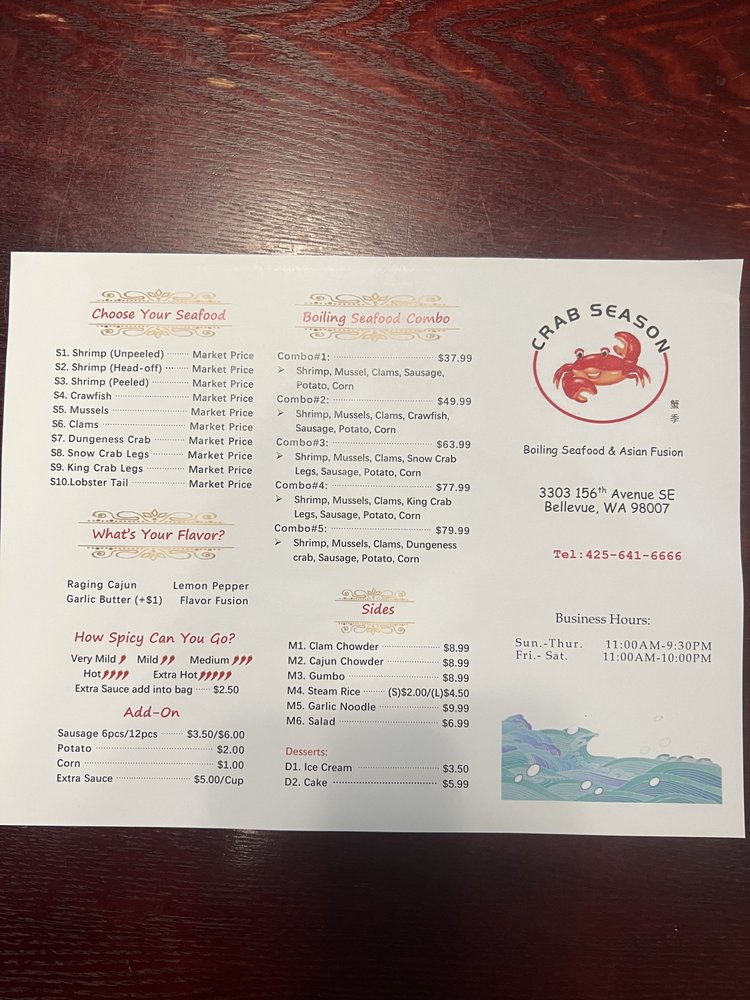 Choose Your Seafood
S1. Shrimp (Unpeeled) ········ Market Price
S2. Shrimp (Head-off) ········ Market Price
S3. Shrimp (Peeled) ········ Market Price
S4. Crawfish ········ Market Price
S5. Mussels ········ Market Price
S6. Clams ········ Market Price
S7. Dungeness Crab ········ Market Price
S8. Snow Crab Legs ········ Market Price
S9. King Crab Legs ········ Market Price
S10.Lobster Tail ········ Market Price
What's Your Flavor?
Raging Cajun Lemon Pepper
Garlic Butter (+$1) Flavor Fusion
How Spicy Can You Go?
Very Mild Mild Medium
Hot Extra Hot
Extra Sauce add into bag ····· $2.50
Add-On
Sausage 6pcs/12pcs ········ $3.50/$6.00
Potato ········ $2.00
Corn ········ $1.00
Extra Sauce ········ $5.00/Cup
Boiling Seafood Combo
Combo#1: ········ $37.99
➢ Shrimp, Mussel, Clams, Sausage,
Potato, Corn
Combo#2: ········ $49.99
➢ Shrimp, Mussels, Clams, Crawfish,
Sausage, Potato, Corn
Combo#3: ········ $63.99
➢ Shrimp, Mussels, Clams, Snow Crab
Legs, Sausage, Potato, Corn
Combo#4: ········ $77.99
➢ Shrimp, Mussels, Clams, King Crab
Legs, Sausage, Potato, Corn
Combo#5: ········ $79.99
➢ Shrimp, Mussels, Clams, Dungeness
crab, Sausage, Potato, Corn
Sides
M1. Clam Chowder ········ $8.99
M2. Cajun Chowder ········ $8.99
M3. Gumbo ········ $8.99
M4. Steam Rice ······· (S)$2.00/(L)$4.50
M5. Garlic Noodle ········ $9.99
M6. Salad ········ $6.99
Desserts:
D1. Ice Cream ········ $3.50
D2. Cake ········ $5.99
CRAB SEASON
蟹季
Boiling Seafood & Asian Fusion
3303 156th Avenue SE
Bellevue, WA 98007
Tel:425-641-6666
Business Hours:
Sun.-Thur. 11:00AM-9:30PM
Fri.- Sat. 11:00AM-10:00PM